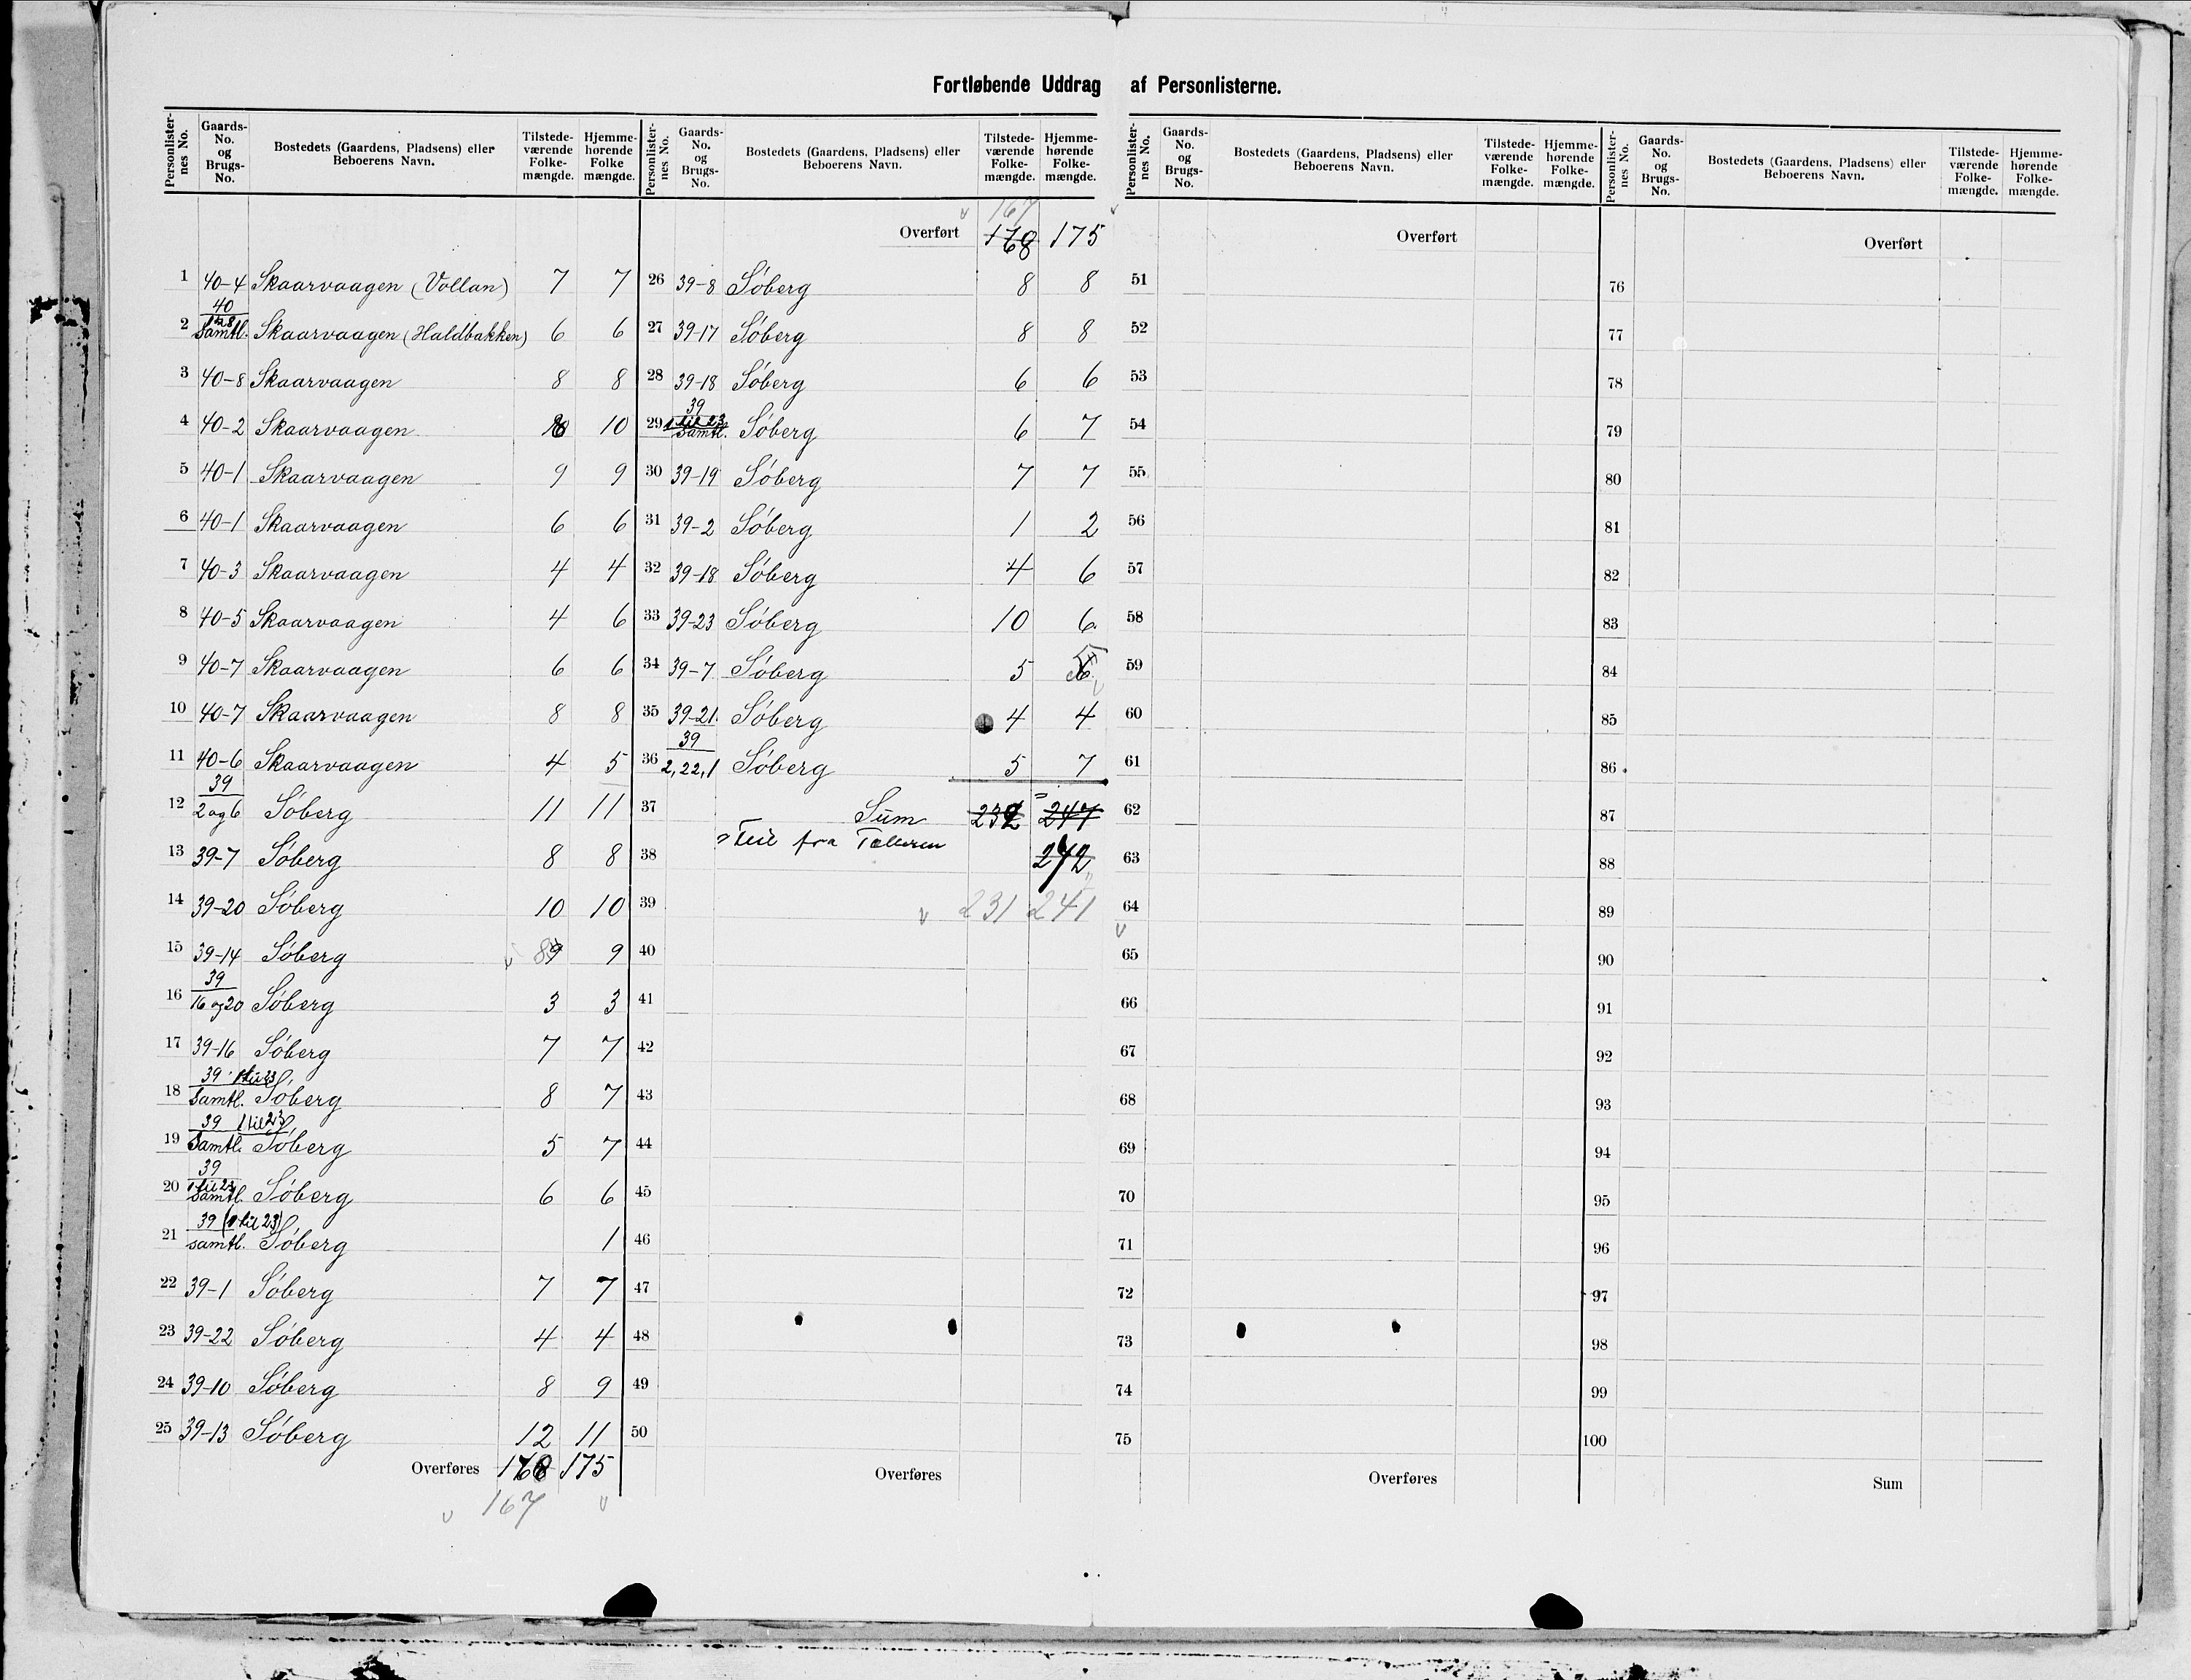 Fortløbende Uddrag af Personlisterne.
Personlisternes No. Gaards-No. og Brugs-No. Bostedets (Gaardens, Pladsens) eller Beboerens Navn. Tilstedeværende Folkemængde. Hjemmehørende Folkemængde.
1 40-4 Skaarvaagen (Vollan) 7 7
2 40 1 til 8 Samtl. Skaarvaagen (Haldbakken) 6 6
3 40-8 Skaarvaagen 8 8
4 40-2 Skaarvaagen 8 10
5 40-1 Skaarvaagen 9 9
6 40-1 Skaarvaagen 6 6
7 40-3 Skaarvaagen 4 4
8 40-5 Skaarvaagen 4 6
9 40-7 Skaarvaagen 6 6
10 40-7 Skaarvaagen 8 8
11 40-6 Skaarvaagen 4 5
12 39 2 og 6 Sóberg 11 11
13 39-7 Sóberg 8 8
14 39-20 Sóberg 10 10
15 39-14 Sóberg 8 9 9
16 39 16 og 20 Sóberg 3 3
17 39-16 Sóberg 7 7
18 39 1 til 23 Samtl. Sóberg 8 7
19 39 1 til 23 Samtl. Sóberg 5 7
20 39 1 til 23 Samtl. Sóberg 6 6
21 39 (1 til 23) samtl. Sóberg 1
22 39-1 Sóberg 7 7
23 39-22 Sóberg 4 4
24 39-10 Sóberg 8 9
25 39-13 Sóberg 12 11
Overføres 168 175
167
Personlisternes No. Gaards-No. og Brugs-No. Bostedets (Gaardens, Pladsens) eller Beboerens Navn. Tilstedeværende Folkemængde. Hjemmehørende Folkemængde.
167
Overført 168 175
26 39-8 Sóberg 8 8
27 39-17 Sóberg 8 8
28 39-18 Sóberg 6 6
29 39 1 til 23 Samtl. Sóberg 6 7
30 39-19 Sóberg 7 7
31 39-2 Sóberg 1 2
32 39-18 Sóberg 4 6
33 39-23 Sóberg 10 6
34 39-7 Sóberg 5 6 5
35 39-21 Sóberg 4 4
36 39 2, 22, 1 Sóberg 5 7
37 Sum 232 247
38 242
39 231 241
40
41
42
43
44
45
46
47
48
49
50
Overføres
Personlisternes No. Gaards-No. og Brugs-No. Bostedets (Gaardens, Pladsens) eller Beboerens Navn. Tilstedeværende Folkemængde. Hjemmehørende Folkemængde.
Overført
51
52
53
54
55
56
57
58
59
60
61
62
63
64
65
66
67
68
69
70
71
72
73
74
75
Overføres
Personlisternes No. Gaards-No. og Brugs-No. Bostedets (Gaardens, Pladsens) eller Beboerens Navn. Tilstedeværende Folkemængde. Hjemmehørende Folkemængde.
Overført
76
77
78
79
80
81
82
83
84
85
86
87
88
89
90
91
92
93
94
95
96
97
98
99
100
Sum